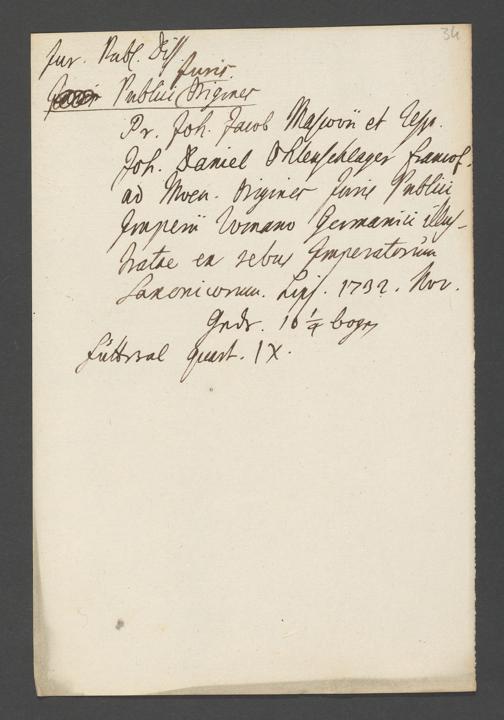 34
Jur. Publ. Diss
Juris
Publici Origines
Pr. Joh. Jacob Mascovii et Resp.
Joh. Daniel Ohlenschlager Francof.
ad Moen. Origines Juris Publici
Imperii Romano Germanici illus-
tratae ex rebus Imperatorum
Saxonicorum. Lips. 1732. Nov.
16 1/4 bogen
quart. IX.